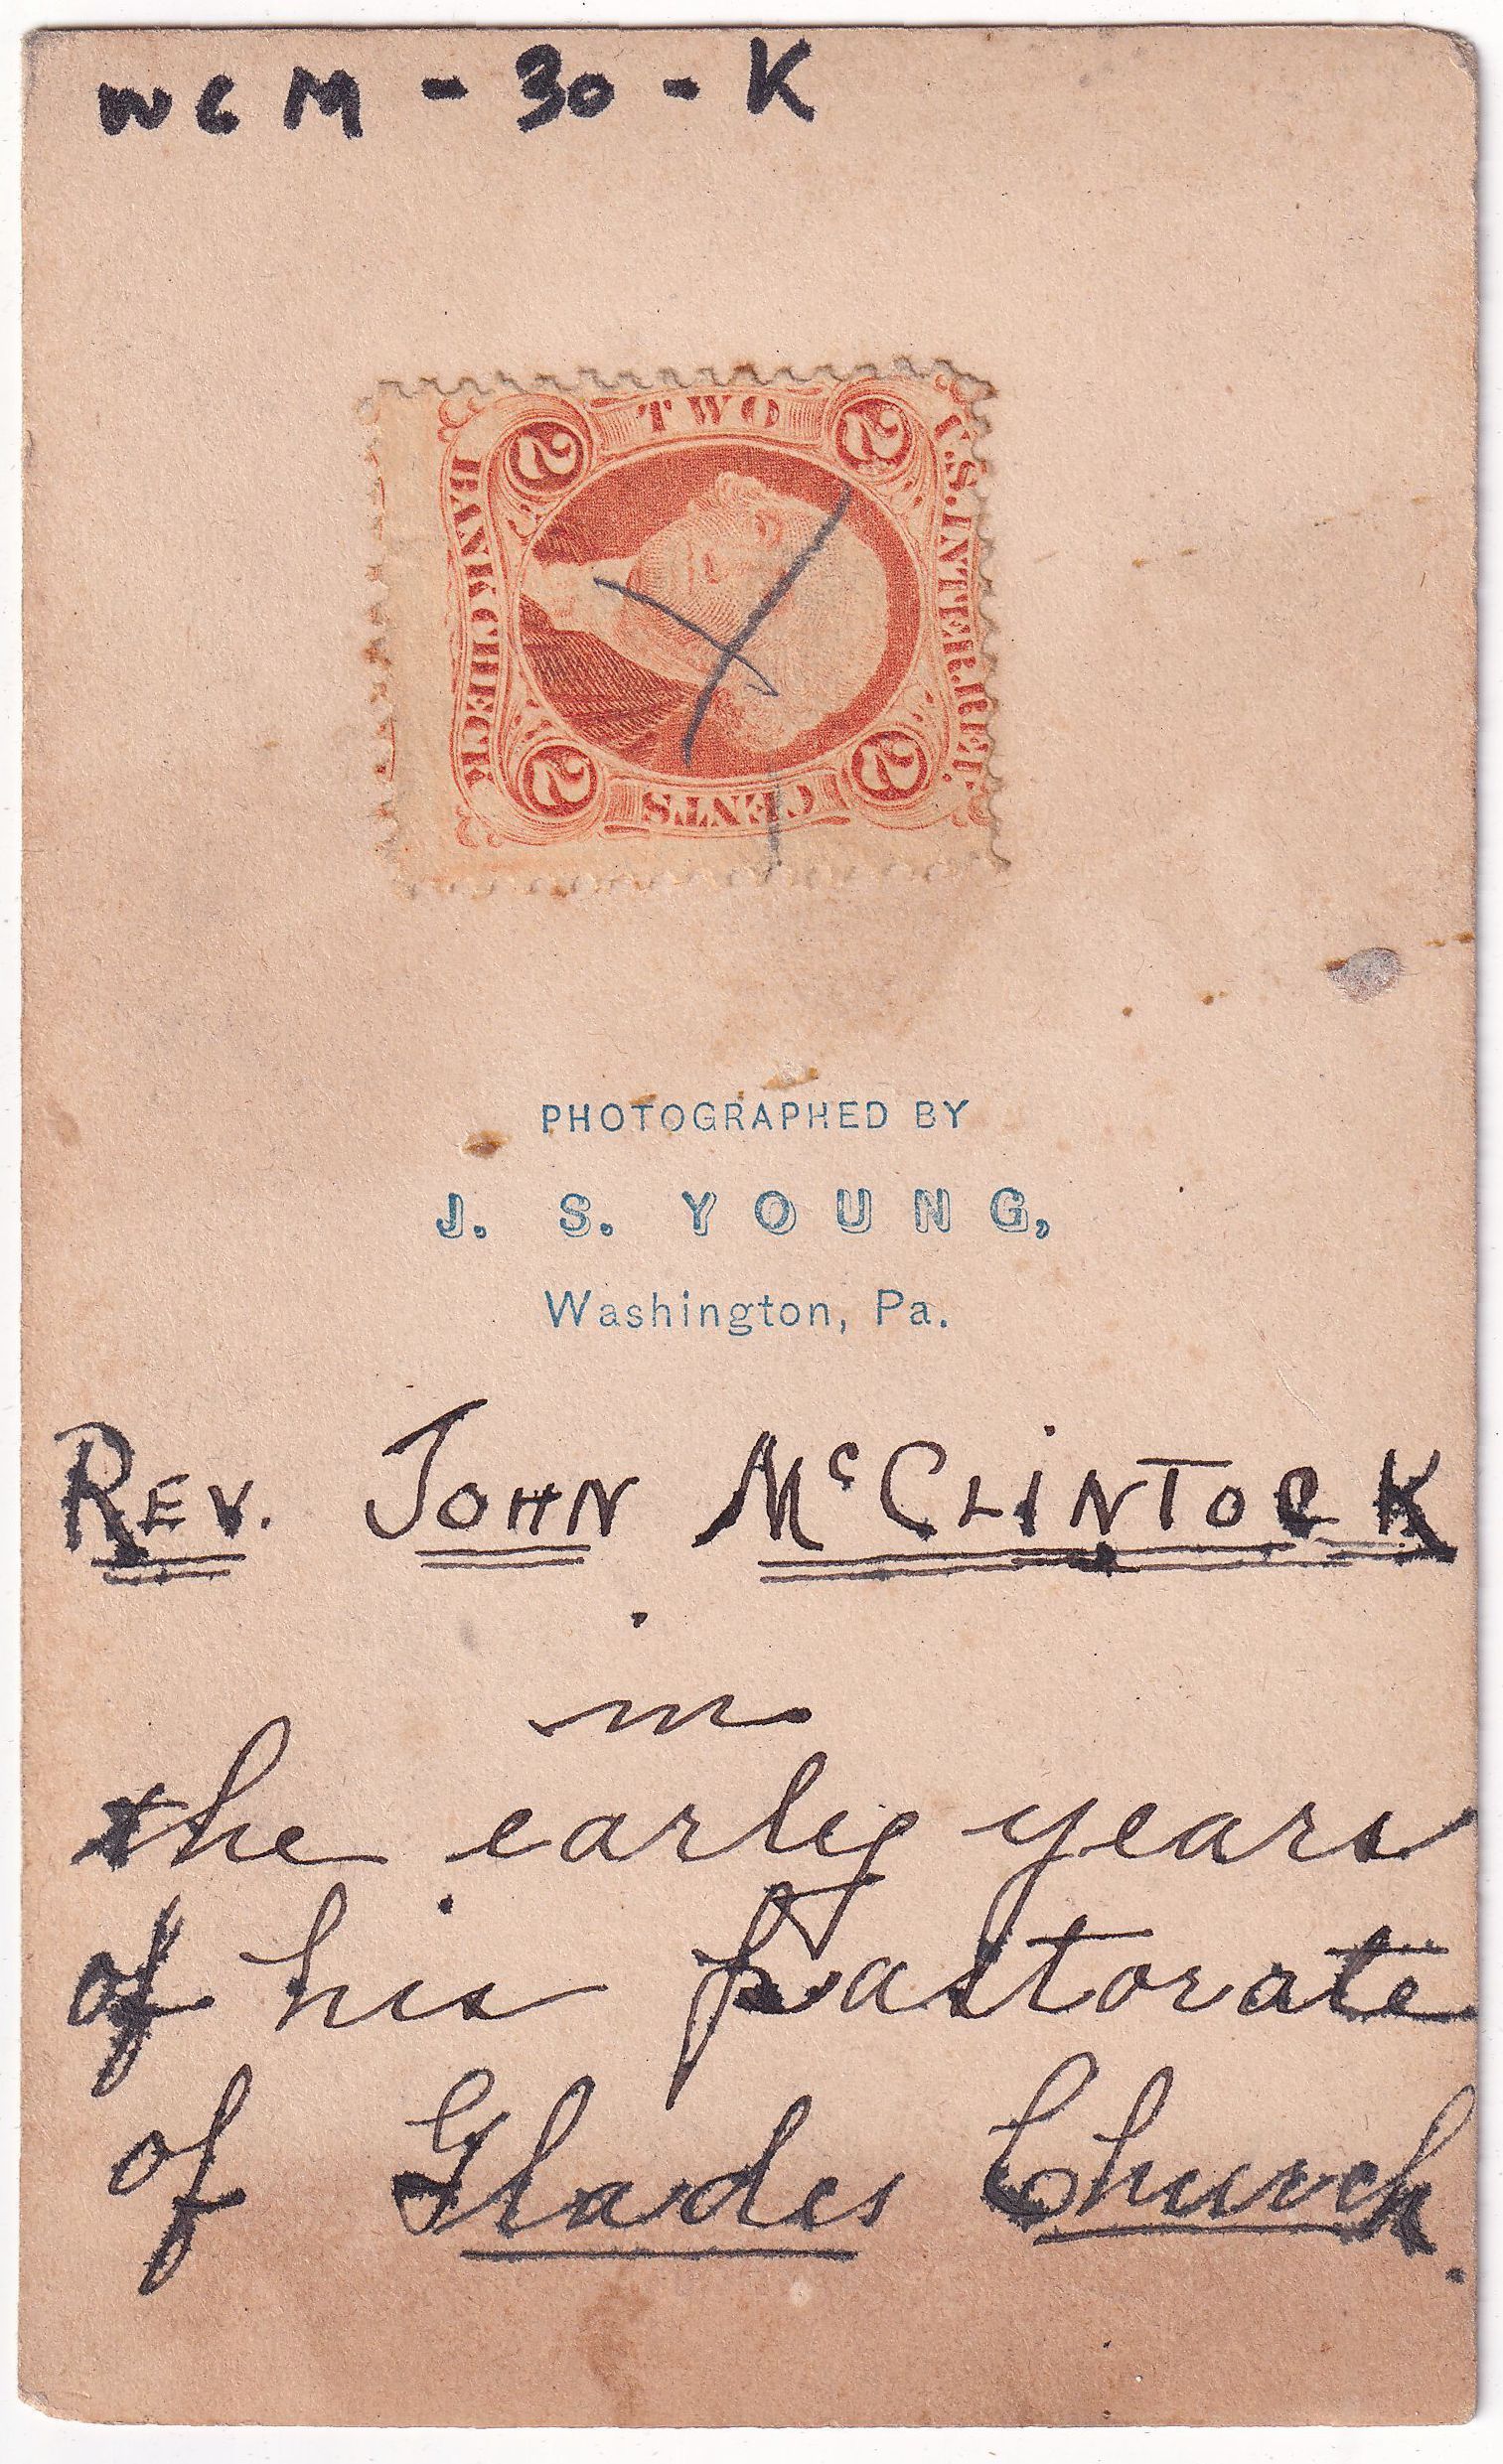 WCM - 30 - K
U.S. INTER. REV.
TWO
CENTS
BANK CHECK
2 2
2 2
PHOTOGRAPHED BY
J. S. YOUNG,
Washington, Pa.
REV. JOHN McCLINTOCK
in
the early years
of his pastorate
of Glades Church.